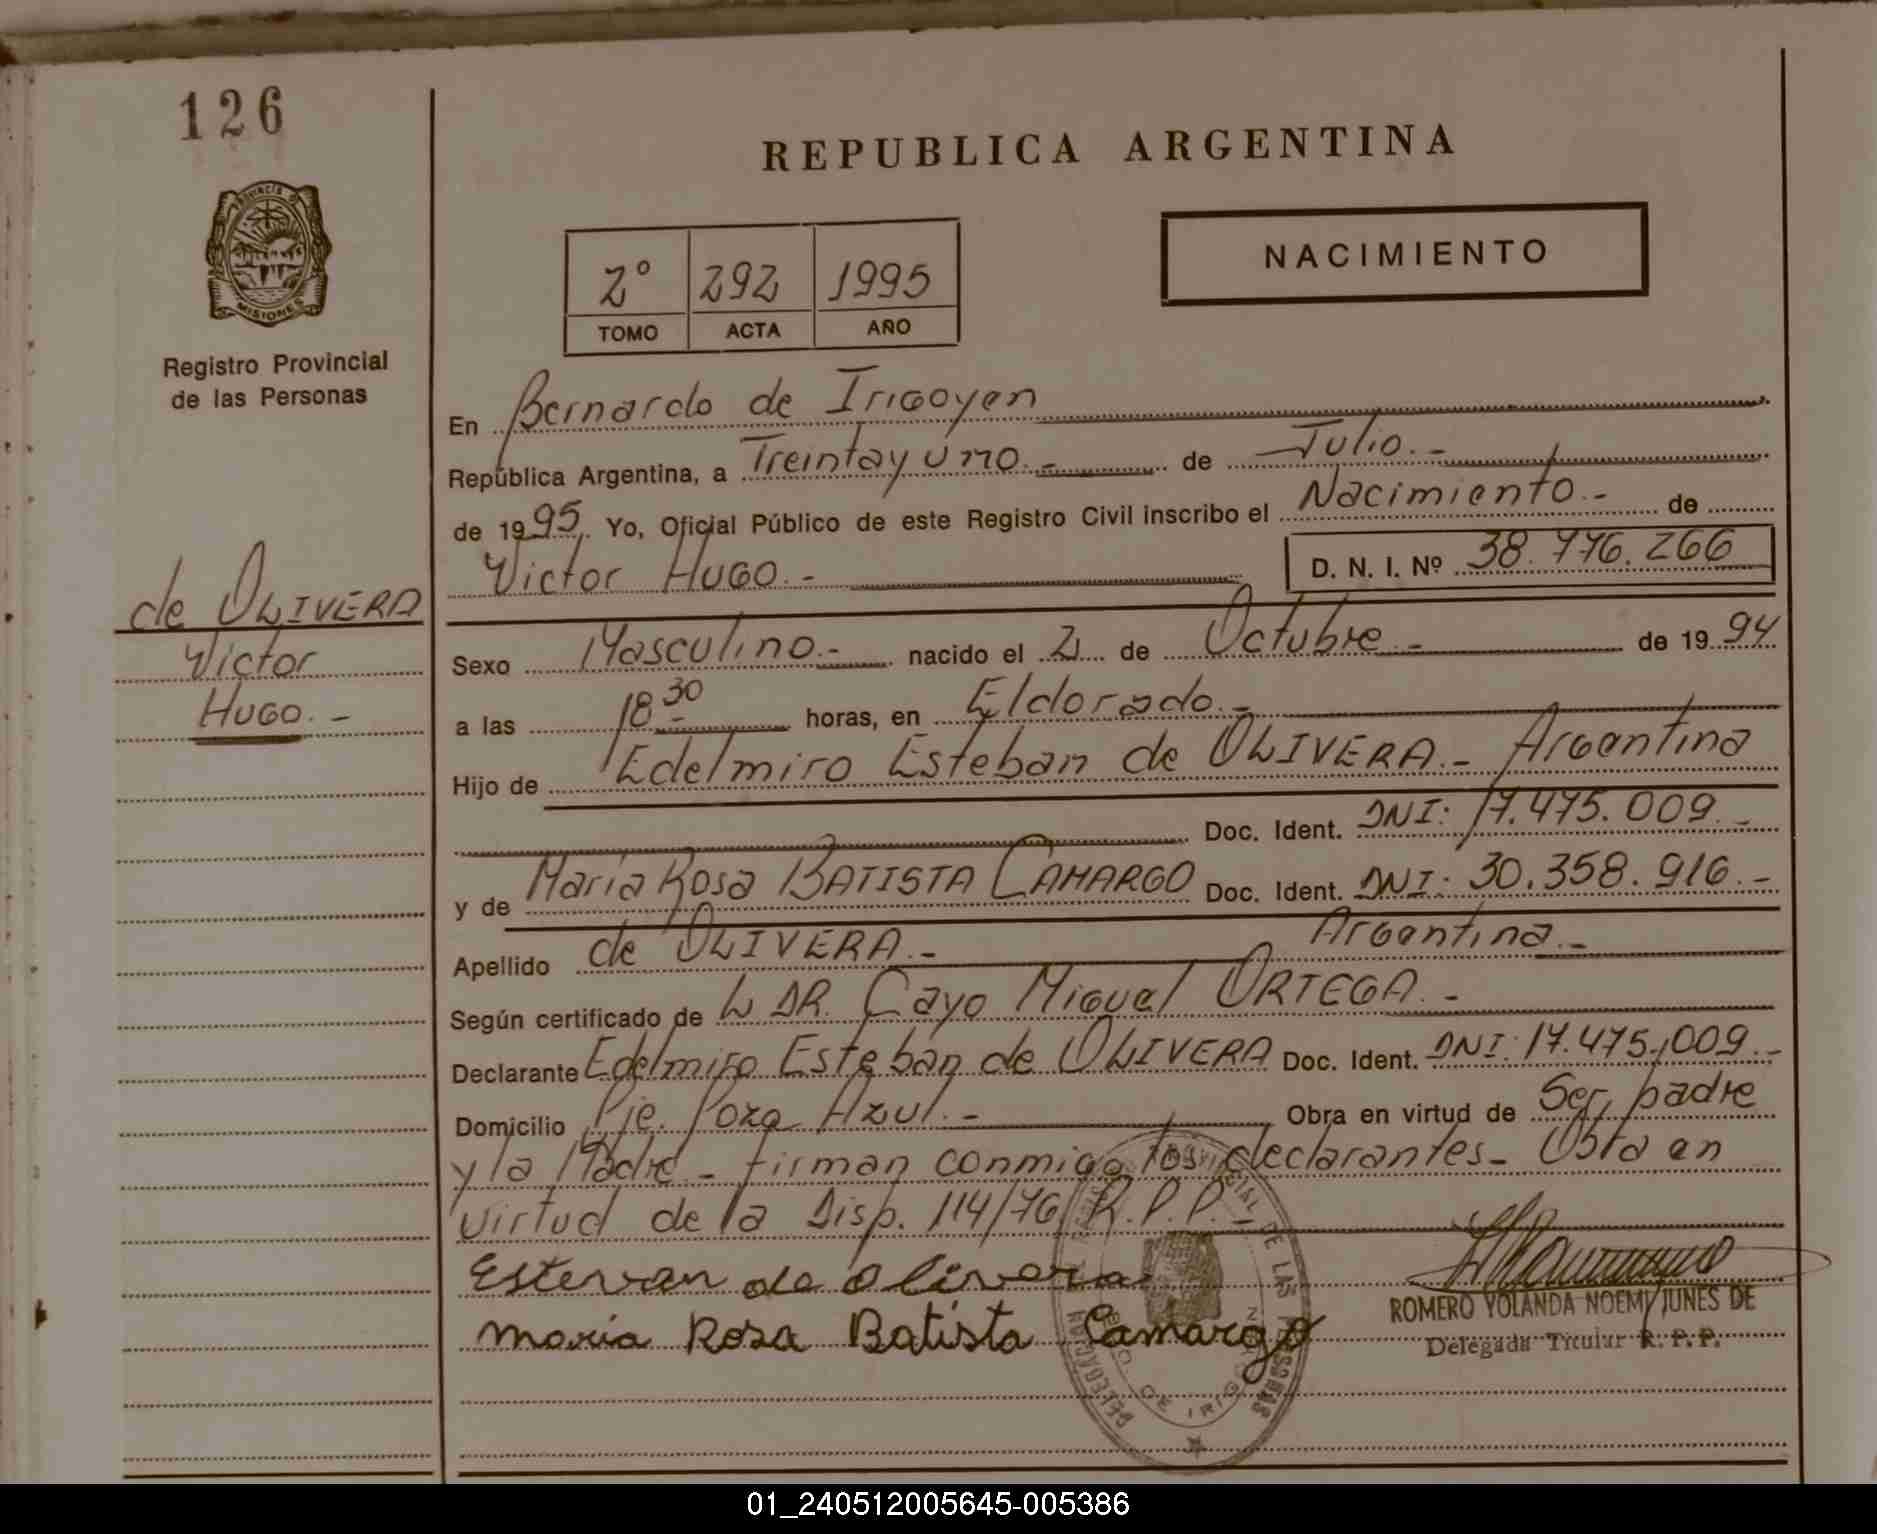 126
REPUBLICA ARGENTINA
PROVINCIA DE
MISIONES
Registro Provincial
de las Personas
NACIMIENTO
2º 292 1995
TOMO ACTA AÑO
En Bernardo de Irigoyen
República Argentina, a Treintayuno.- de Julio.-
de 1995. Yo, Oficial Público de este Registro Civil inscribo el Nacimiento.- de
Victor Hugo.- D. N. I. Nº 38.776.266
de OLIVERA
Victor
Hugo.-
Sexo Masculino.- nacido el 21 de Octubre.- de 1994
a las 18 30 horas, en Eldorado.-
Hijo de Edelmiro Esteban de OLIVERA.- Argentina
Doc. Ident. DNI: 17.475.009.-
y de María Rosa BATISTA CAMARGO Doc. Ident. DNI: 30.358.916.-
Apellido de OLIVERA.- Argentina.-
Según certificado de L DR. Cayo Miguel ORTEGA.-
Declarante Edelmiro Esteban de OLIVERA Doc. Ident. DNI: 17.475.009.-
Domicilio Pje. Pozo Azul.- Obra en virtud de Ser, padre
y la Madre.- firman conmigo los declarantes.- Obra en
virtud de la Disp. 114/76 R.P.P.-
Estevan de olivera
maria Rosa Batista Camargo
ROMERO YOLANDA NOEMI JUNES DE
Delegada Titular R. P. P.
01_240512005645-005386